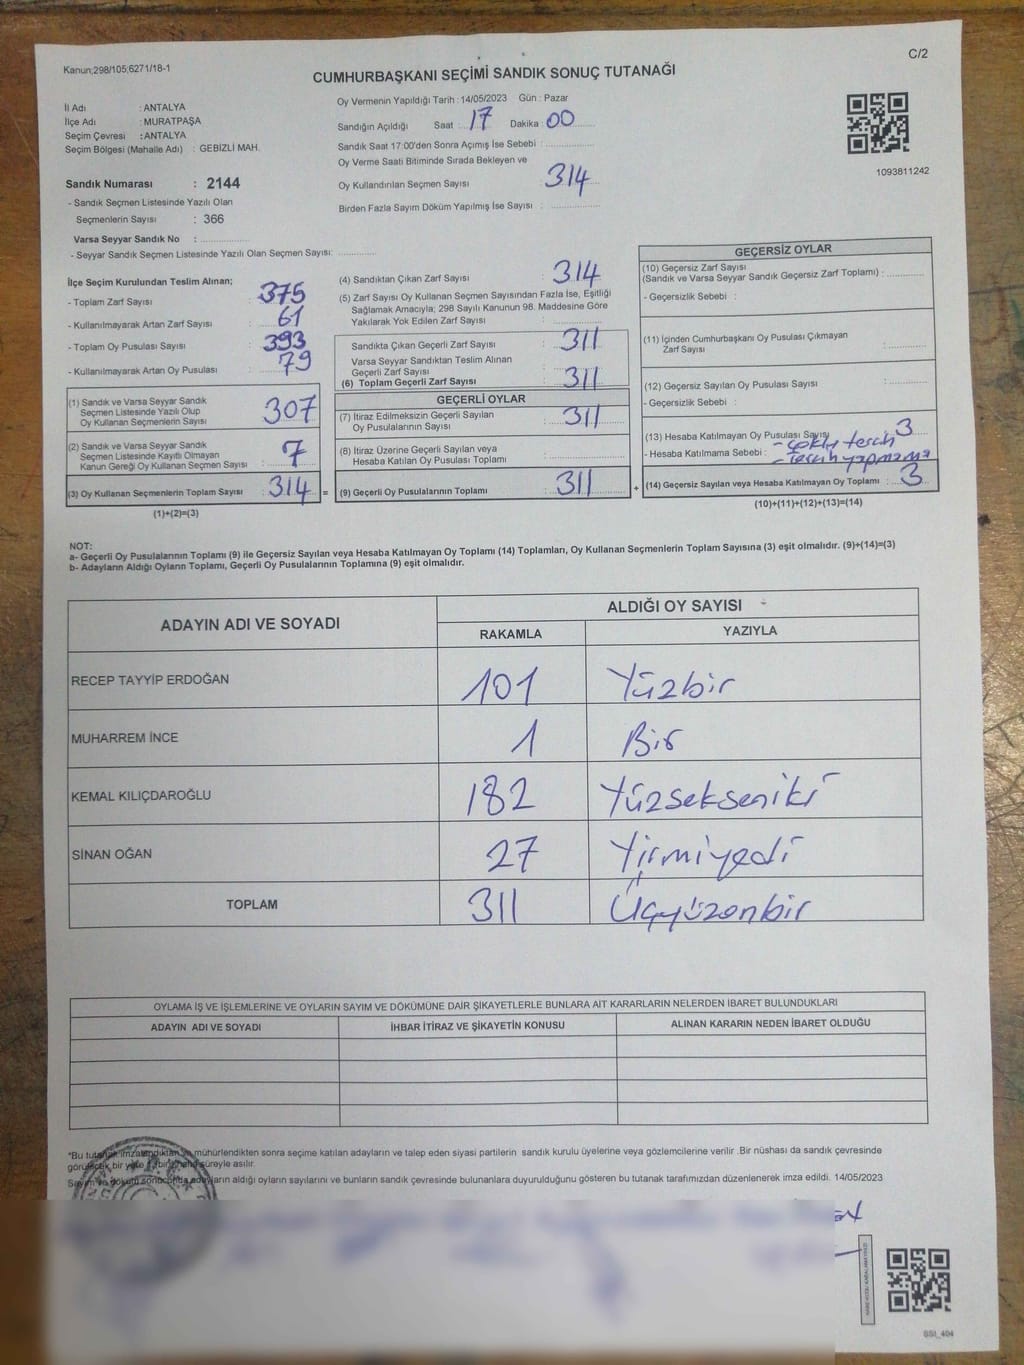 Kanun;298/105;6271/18-1
C/2
CUMHURBAŞKANI SEÇİMİ SANDIK SONUÇ TUTANAĞI
İl Adı : ANTALYA
İlçe Adı : MURATPAŞA
Seçim Çevresi : ANTALYA
Seçim Bölgesi (Mahalle Adı) : GEBİZLİ MAH.
Sandık Numarası : 2144
- Sandık Seçmen Listesinde Yazılı Olan
Seçmenlerin Sayısı : 366
Varsa Seyyar Sandık No : ..................
- Seyyar Sandık Seçmen Listesinde Yazılı Olan Seçmen Sayısı: ..............
Oy Vermenin Yapıldığı Tarih : 14/05/2023 Gün : Pazar
Sandığın Açıldığı Saat : 17 Dakika : 00
Sandık Saat 17:00'den Sonra Açımış İse Sebebi : ..................
Oy Verme Saati Bitiminde Sırada Bekleyen ve
Oy Kullandırılan Seçmen Sayısı : 314
Birden Fazla Sayım Döküm Yapılmış İse Sayısı : ..................
1093811242
İlçe Seçim Kurulundan Teslim Alınan;
- Toplam Zarf Sayısı : 375
- Kullanılmayarak Artan Zarf Sayısı : 61
- Toplam Oy Pusulası Sayısı : 393
- Kullanılmayarak Artan Oy Pusulası : 79
(1) Sandık ve Varsa Seyyar Sandık
Seçmen Listesinde Yazılı Olup
Oy Kullanan Seçmenlerin Sayısı : 307
(2) Sandık ve Varsa Seyyar Sandık
Seçmen Listesinde Kayıtlı Olmayan
Kanun Gereği Oy Kullanan Seçmen Sayısı : 7
(3) Oy Kullanan Seçmenlerin Toplam Sayısı : 314 =
(1)+(2)=(3)
(4) Sandıktan Çıkan Zarf Sayısı : 314
(5) Zarf Sayısı Oy Kullanan Seçmen Sayısından Fazla İse, Eşitliği
Sağlamak Amacıyla; 298 Sayılı Kanunun 98. Maddesine Göre
Yakılarak Yok Edilen Zarf Sayısı : ..................
Sandıkta Çıkan Geçerli Zarf Sayısı : 311
Varsa Seyyar Sandıktan Teslim Alınan
Geçerli Zarf Sayısı : ..................
(6) Toplam Geçerli Zarf Sayısı : 311
GEÇERLİ OYLAR
(7) İtiraz Edilmeksizin Geçerli Sayılan
Oy Pusulalarının Sayısı : 311
(8) İtiraz Üzerine Geçerli Sayılan veya
Hesaba Katılan Oy Pusulası Toplamı : ..................
(9) Geçerli Oy Pusulalarının Toplamı : 311 +
GEÇERSİZ OYLAR
(10) Geçersiz Zarf Sayısı
(Sandık ve Varsa Seyyar Sandık Geçersiz Zarf Toplamı) : ..............
- Geçersizlik Sebebi :
(11) İçinden Cumhurbaşkanı Oy Pusulası Çıkmayan
Zarf Sayısı : ..............
(12) Geçersiz Sayılan Oy Pusulası Sayısı : ..............
- Geçersizlik Sebebi :
(13) Hesaba Katılmayan Oy Pusulası Sayısı 3
- Hesaba Katılmama Sebebi : - çoklu tercih
- tercih yapmama
(14) Geçersiz Sayılan veya Hesaba Katılmayan Oy Toplamı : 3
(10)+(11)+(12)+(13)=(14)
NOT:
a- Geçerli Oy Pusulalarının Toplamı (9) ile Geçersiz Sayılan veya Hesaba Katılmayan Oy Toplamı (14) Toplamları, Oy Kullanan Seçmenlerin Toplam Sayısına (3) eşit olmalıdır. (9)+(14)=(3)
b- Adayların Aldığı Oyların Toplamı, Geçerli Oy Pusulalarının Toplamına (9) eşit olmalıdır.
ADAYIN ADI VE SOYADI
ALDIĞI OY SAYISI
RAKAMLA YAZIYLA
RECEP TAYYİP ERDOĞAN 101 Yüzbir
MUHARREM İNCE 1 Bir
KEMAL KILIÇDAROĞLU 182 Yüzsekseniki
SİNAN OĞAN 27 Yirmiyedi
TOPLAM 311 Üçyüzonbir
OYLAMA İŞ VE İŞLEMLERİNE VE OYLARIN SAYIM VE DÖKÜMÜNE DAİR ŞİKAYETLERLE BUNLARA AİT KARARLARIN NELERDEN İBARET BULUNDUKLARI
ADAYIN ADI VE SOYADI İHBAR İTİRAZ VE ŞİKAYETİN KONUSU ALINAN KARARIN NEDEN İBARET OLDUĞU
*Bu tutanak imzalandıktan ve mühürlendikten sonra seçime katılan adayların ve talep eden siyasi partilerin sandık kurulu üyelerine veya gözlemcilerine verilir .Bir nüshası da sandık çevresinde
görülecek bir yere bir hafta süreyle asılır.
Sayım ve döküm sonucunda adayların aldığı oyların sayılarını ve bunların sandık çevresinde bulunanlara duyurulduğunu gösteren bu tutanak tarafımızdan düzenlenerek imza edildi. 14/05/2023
SSI_404